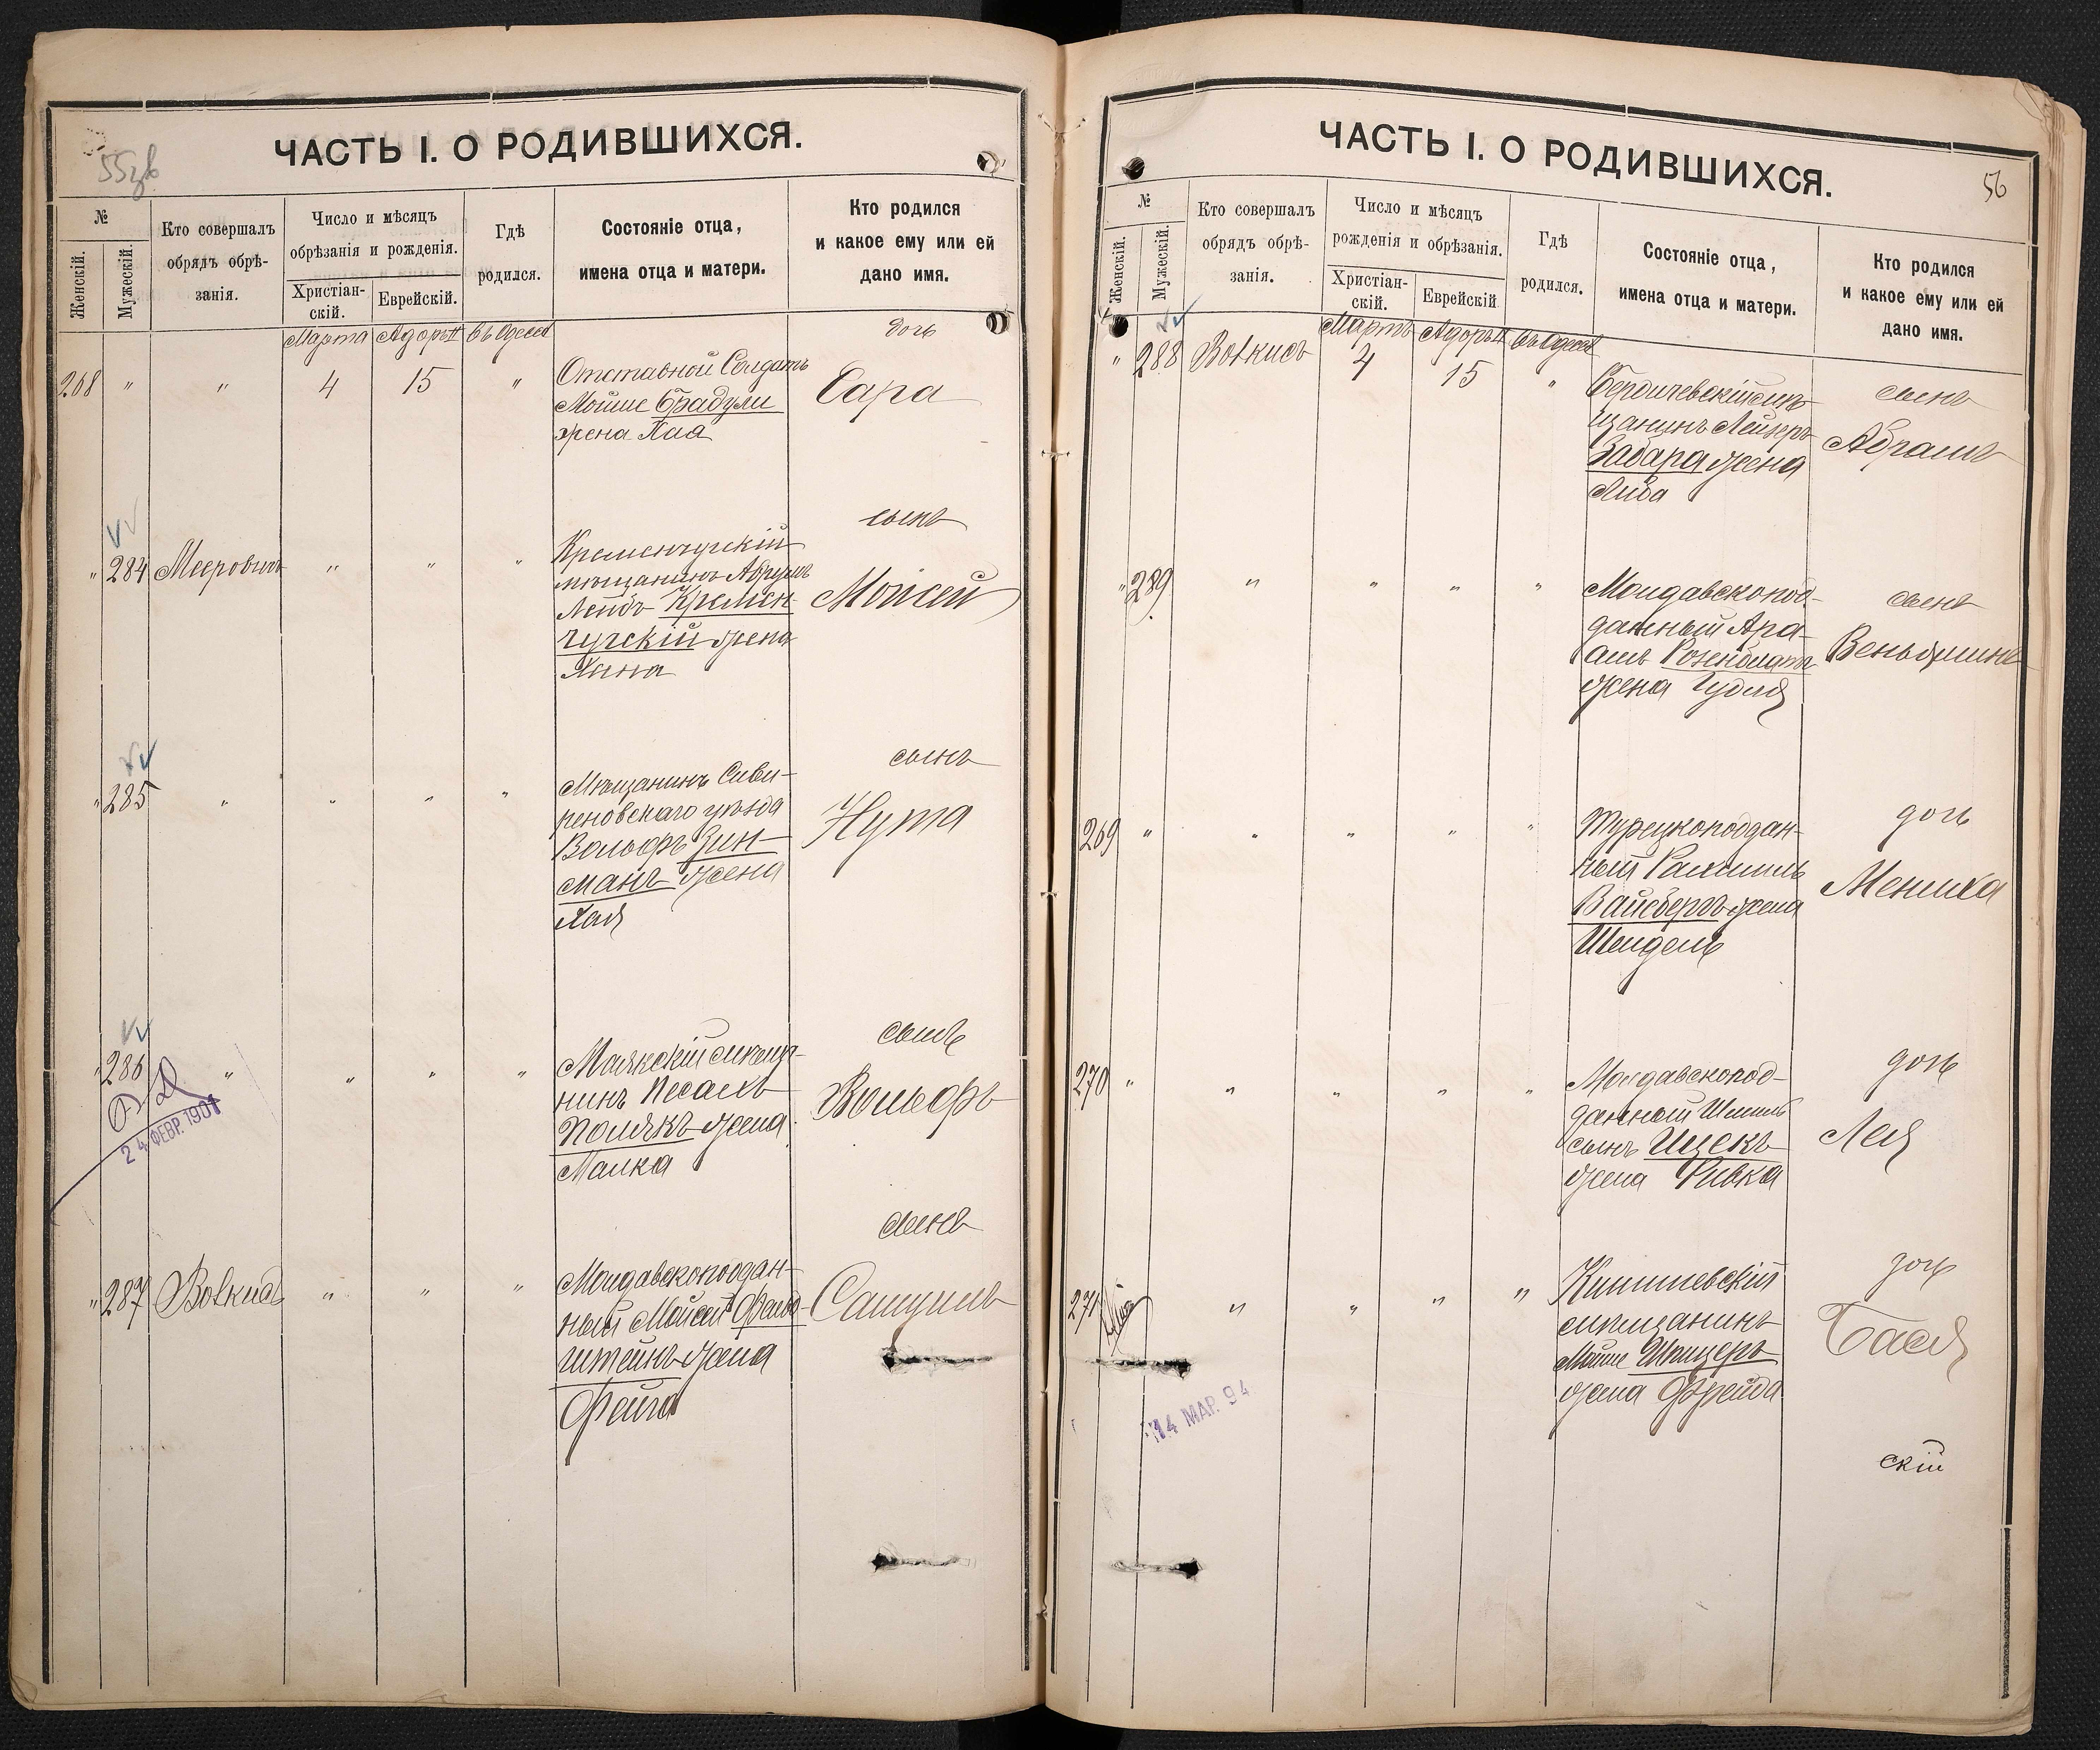 55зв
ЧАСТЬ I. О РОДИВШИХСЯ.
№
Женскій.
Мужескій.
Кто совершалъ
обрядъ обрѣ-
занія.
Число и мѣсяцъ
обрѣзанія и рожденія.
Христіан-
скій.
Еврейскій.
Гдѣ
родился.
Состояніе отца,
имена отца и матери.
Кто родился
и какое ему или ей
дано имя.
Марта Адоръ II въ Одессѣ
268 " " 4 15 "
Отставной Солдатъ
Мойше Брадули
жена Хая
дочь
Сара
" 284 Мееровичъ " " "
Кременчугскій
мѣщанинъ Абрумъ
Лейбъ Кремен-
чугскій жена
Хина
сынъ
Мойсей
" 285 " " " "
Мѣщанинъ Сиви-
риновскаго уѣзда
Вольфъ Зин-
манъ жена
Хая
сынъ
Нута
" 286 " " " "
24 ФЕВР. 1901
Маякскій мѣща-
нинъ Песахъ
Полякъ жена
Малка
сынъ
Вольфъ
" 287 Вовкисъ " " "
Молдавскоподдан-
ный Мойсей Фельд-
штейнъ жена
Фейга
сынъ
Самуилъ
56
ЧАСТЬ I. О РОДИВШИХСЯ.
№
Женскій.
Мужескій.
Кто совершалъ
обрядъ обрѣ-
занія.
Число и мѣсяцъ
рожденія и обрѣзанія.
Христіан-
скій.
Еврейскій
Гдѣ
родился.
Состояніе отца,
имена отца и матери.
Кто родился
и какое ему или ей
дано имя.
Мартъ Адоръ II въ Одессѣ
" 288 Вовкисъ 4 15 "
Бердичевскій мѣ-
щанинъ Лейзеръ
Забара жена
Либа
сынъ
Абрамъ
" 289 " " " "
Молдавскопод-
данный Авра-
амъ Розенблатъ
жена Гудля
сынъ
Веньяминъ
269 " " " " "
Турецкоподдан-
ный Рахмиль
Вайсбергъ жена
Шейдель
дочь
Мениха
270 " " " " "
Молдавскопод-
данный Шмиль
сынъ Ицекъ
жена Ривка
дочь
Лея
271 " " " "
14 МАР. 94
Кишиневскій
мѣщанинъ
Мойше Шпицеръ
жена Фрейда
дочь
Бася
скій